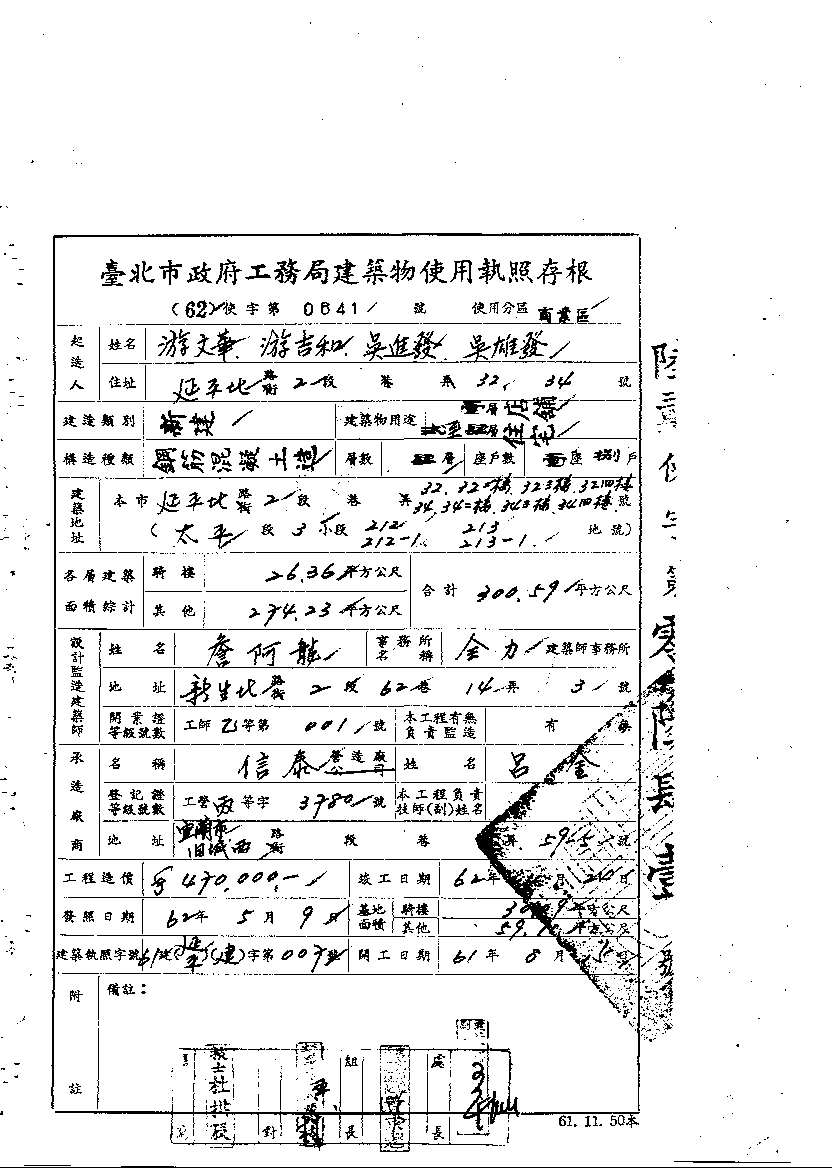 臺北市政府工務局建築物使用執照存根
(62)使字第 0641 號 使用分區 商業區
起造人 姓名 游文華、游吉和、吳進發、吳雄發
住址 延平北 路街 2 段 巷 弄 32、34 號
建造類別 新建 建築物用途 壹層店鋪
層住宅
構造種類 鋼筋混凝土造 層數 層 座戶數 座 捌戶
建築地址 本市 延平北 路街 2 段 巷 弄 32,32二樓,32三樓,32四樓 34,34二樓,34三樓,34四樓 號
(太平 段 3 小段 212 212-1、213 213-1 地號)
各層建築面積綜計 騎樓 26.36 平方公尺 合計 300.59 平方公尺
其他 274.23 平方公尺
設計監造建築師 姓名 詹阿龍 事務所名稱 全力 建築師事務所
地址 新生北 路街 2 段 62 巷 14 弄 3 號
開業證等級號數 工師 乙 等第 001 號 本工程有無負責監造 有
承造廠商 名稱 信泰 營造廠公司 姓名 呂金
登記證等級號數 工營 丙 等字 3780 號 本工程負責技師(副)姓名
地址 宜蘭市旧城西 路街 段 巷 弄 59-5 號
工程造價 470,000.- 竣工日期 62 年 月 日
發照日期 62 年 5 月 9 日 基地面積 騎樓 平方公尺
其他 59. 平方公尺
建築執照字號 61建(延平)(建)字第 007 號 開工日期 61 年 8 月
附註 備註：
組長 處長
校對
61. 11. 50本